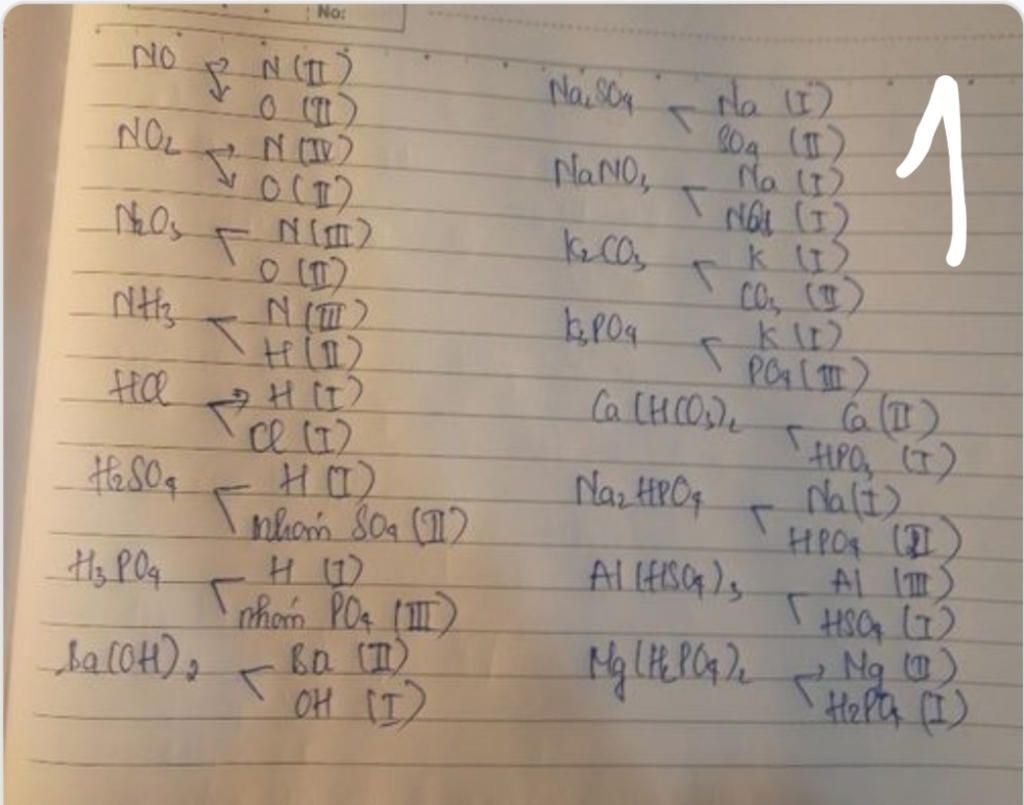 No:
NO N (II)
O (II)
NO2 N (IV)
O (II)
N2O3 N (III)
O (II)
NH3 N (III)
H (II)
HCl H (I)
Cl (I)
H2SO4 H (I)
nhóm SO4 (II)
H3PO4 H (I)
nhóm PO4 (III)
Ba(OH)2 Ba (II)
OH (I)
1
Na2SO4 Na (I)
SO4 (II)
NaNO3 Na (I)
(I)
K2CO3 K (I)
CO3 (II)
K3PO4 K (I)
PO4 (III)
Ca(HCO3)2 Ca (II)
HPO3 (I)
Na2HPO4 Na (I)
HPO4 (II)
Al(HSO4)3 Al (III)
HSO4 (I)
Mg(H2PO4)2 Mg (II)
H2PO4 (I)